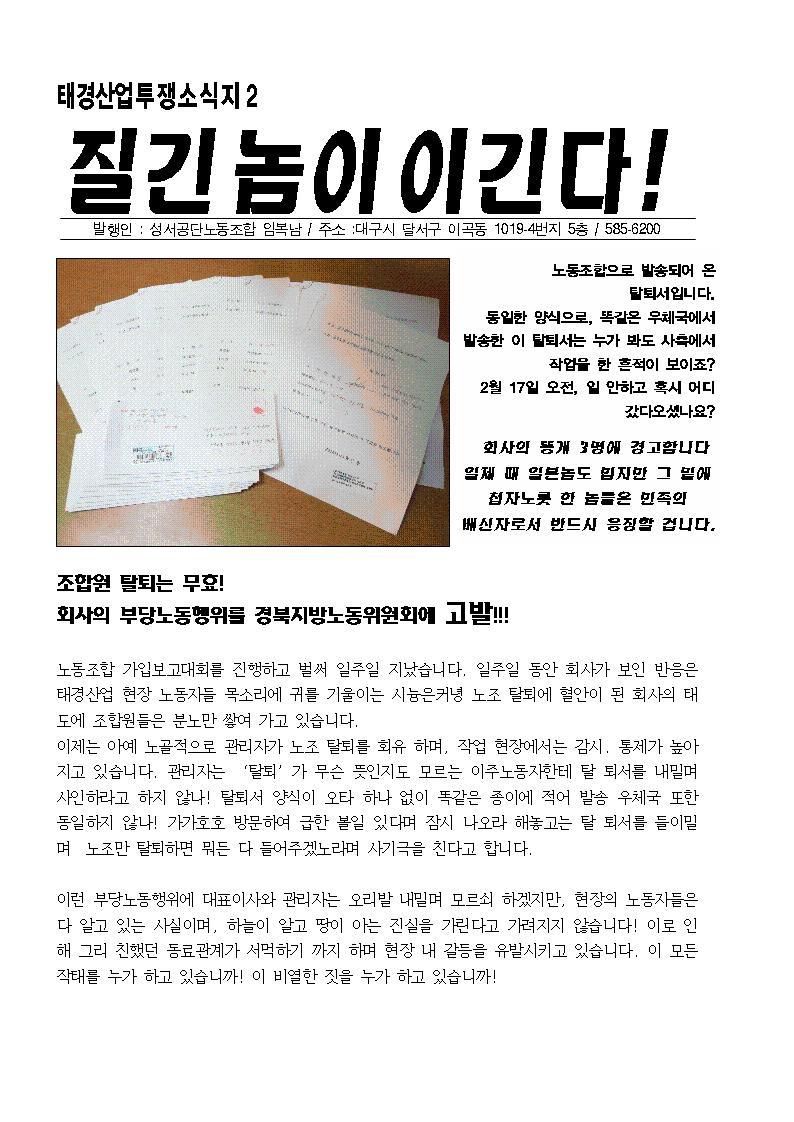 태경산업투쟁소식지 2
질긴 놈이 이긴다!
발행인 : 성서공단노동조합 임복남 / 주소 :대구시 달서구 이곡동 1019-4번지 5층 / 585-6200
노동조합으로 발송되어 온
탈퇴서입니다.
동일한 양식으로, 똑같은 우체국에서
발송한 이 탈퇴서는 누가 봐도 사측에서
작업을 한 흔적이 보이죠?
2월 17일 오전, 일 안하고 혹시 어디
갔다오셨나요?
회사의 똥개 3명에 경고합니다
일제 때 일본놈도 밉지만 그 밑에
첩자노릇 한 놈들은 민족의
배신자로서 반드시 응징할 겁니다.
조합원 탈퇴는 무효!
회사의 부당노동행위를 경북지방노동위원회에 고발!!!
노동조합 가입보고대회를 진행하고 벌써 일주일 지났습니다. 일주일 동안 회사가 보인 반응은
태경산업 현장 노동자들 목소리에 귀를 기울이는 시늉은커녕 노조 탈퇴에 혈안이 된 회사의 태
도에 조합원들은 분노만 쌓여 가고 있습니다.
이제는 아예 노골적으로 관리자가 노조 탈퇴를 회유 하며, 작업 현장에서는 감시. 통제가 높아
지고 있습니다. 관리자는 ‘탈퇴’가 무슨 뜻인지도 모르는 이주노동자한테 탈 퇴서를 내밀며
사인하라고 하지 않나! 탈퇴서 양식이 오타 하나 없이 똑같은 종이에 적어 발송 우체국 또한
동일하지 않나! 가가호호 방문하여 급한 볼일 있다며 잠시 나오라 해놓고는 탈 퇴서를 들이밀
며 노조만 탈퇴하면 뭐든 다 들어주겠노라며 사기극을 친다고 합니다.
이런 부당노동행위에 대표이사와 관리자는 오리발 내밀며 모르쇠 하겠지만, 현장의 노동자들은
다 알고 있는 사실이며, 하늘이 알고 땅이 아는 진실을 가린다고 가려지지 않습니다! 이로 인
해 그리 친했던 동료관계가 서먹하기 까지 하며 현장 내 갈등을 유발시키고 있습니다. 이 모든
작태를 누가 하고 있습니까! 이 비열한 짓을 누가 하고 있습니까!